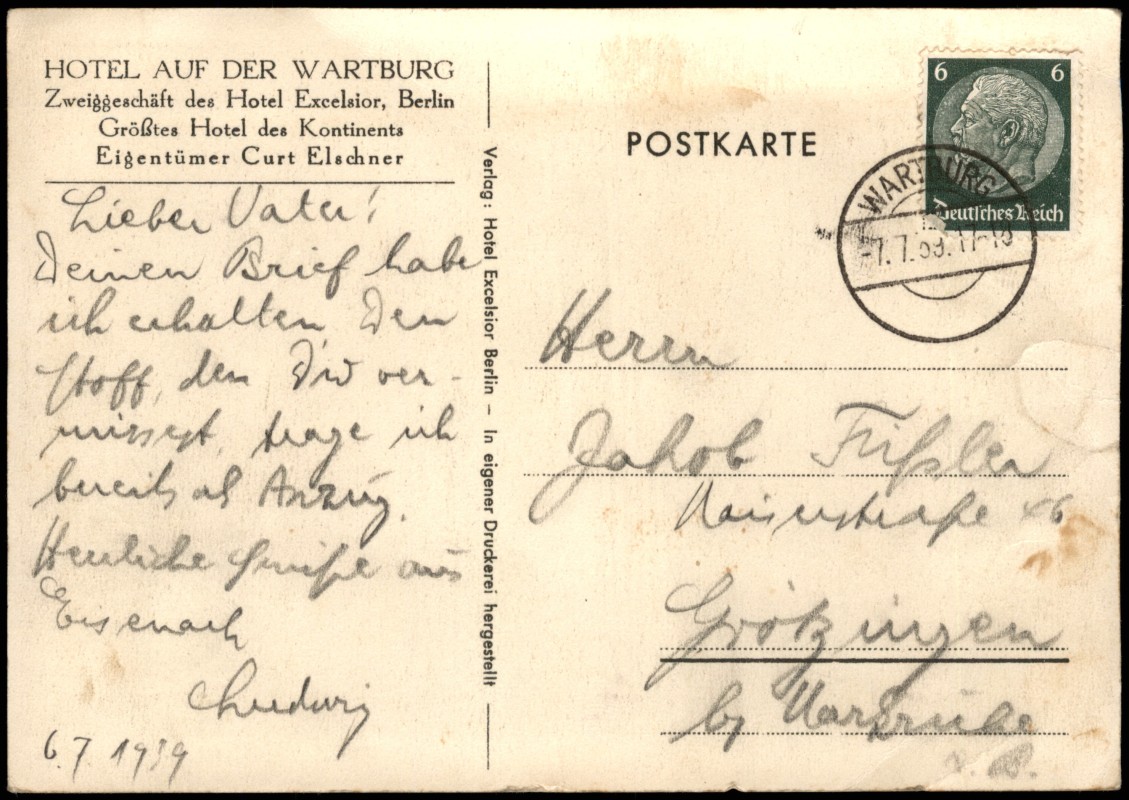 HOTEL AUF DER WARTBURG
Zweiggeschäft des Hotel Excelsior, Berlin
Größtes Hotel des Kontinents
Eigentümer Curt Elschner
Lieber Vater!
Deinen Brief habe
ich erhalten Den
Stoff, den Du ver-
missest, trage ich
bereits als Anzug.
Herzliche Grüße aus
Eisenach
Ludwig
6.7.1939
Verlag: Hotel Excelsior Berlin – In eigener Druckerei hergestellt
POSTKARTE
6 6
Deutsches Reich
WARTBURG
-7.7.39.17-18
Herrn
Jakob Füßler
Kaiserstraße 46
Grötzingen
by Karlsruhe